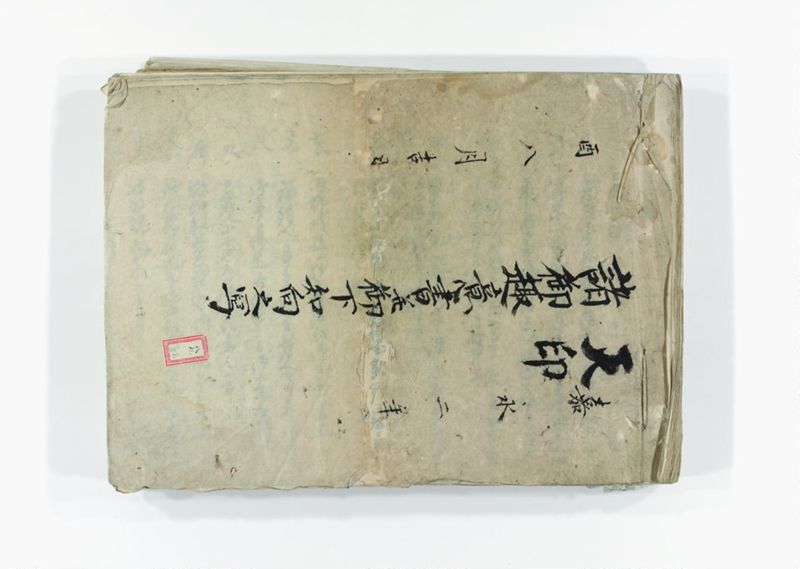 嘉永二年
天印
諸御趣意書并御下知向之写
酉八月吉日